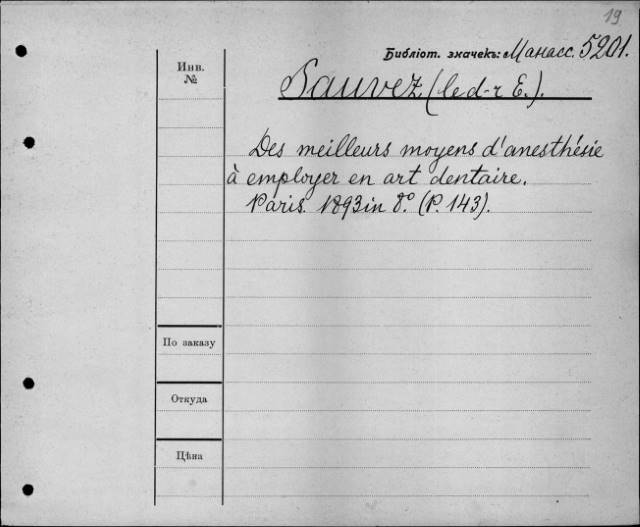 19
Библіот. значекъ: Манасс. 5201.
Инв.
№
Sauvez (le d-r E.).
Des meilleurs moyens d'anesthésie
à employer en art dentaire.
Paris. 1893 in 8° (P. 143).
По заказу
Откуда
Цѣна